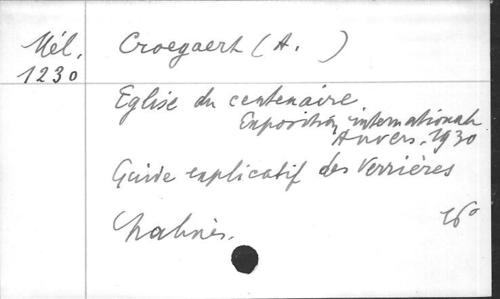 Mél.
1230
Croegaert (A. )
Eglise du centenaire
Exposition internationale
Anvers, 1930
Guide explicatif des Verrières
Malines.
16°